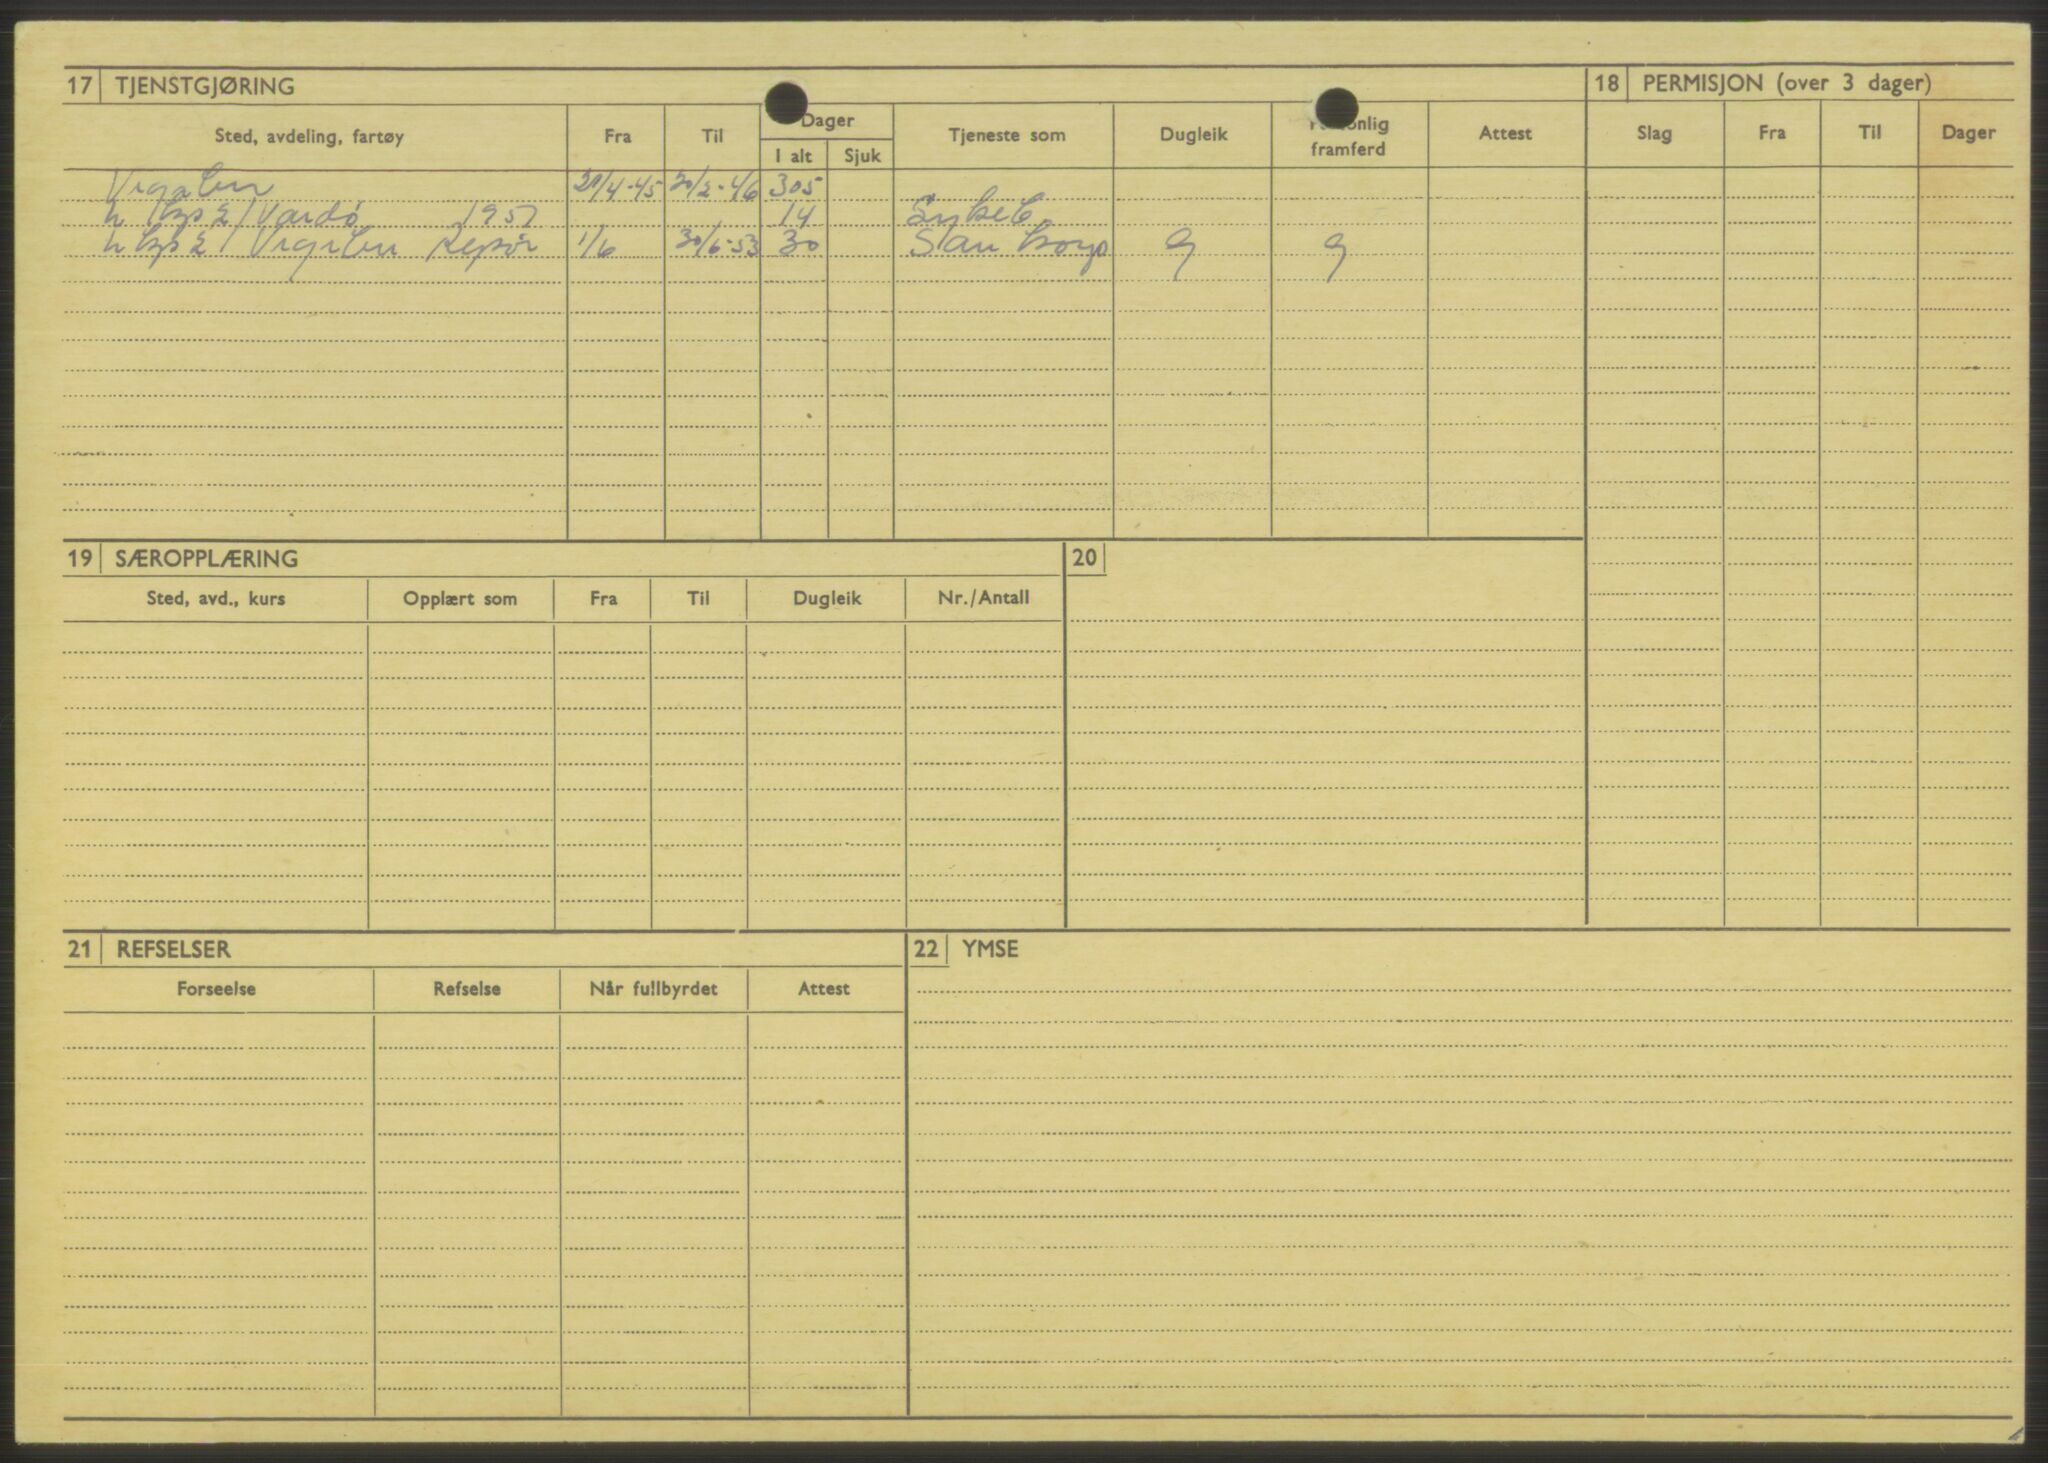 17 TJENSTGJØRING
Sted, avdeling, fartøy Fra Til Dager Tjeneste som Dugleik Personlig framferd Attest
I alt Sjuk
20/4-45 20/2-46 305
Vardø 14 Sykeb.
1/6 30/6-53 30 San korp g g
18 PERMISJON (over 3 dager)
Slag Fra Til Dager
19 SÆROPPLÆRING
Sted, avd., kurs Opplært som Fra Til Dugleik Nr./Antall
20
21 REFSELSER
Forseelse Refselse Når fullbyrdet Attest
22 YMSE